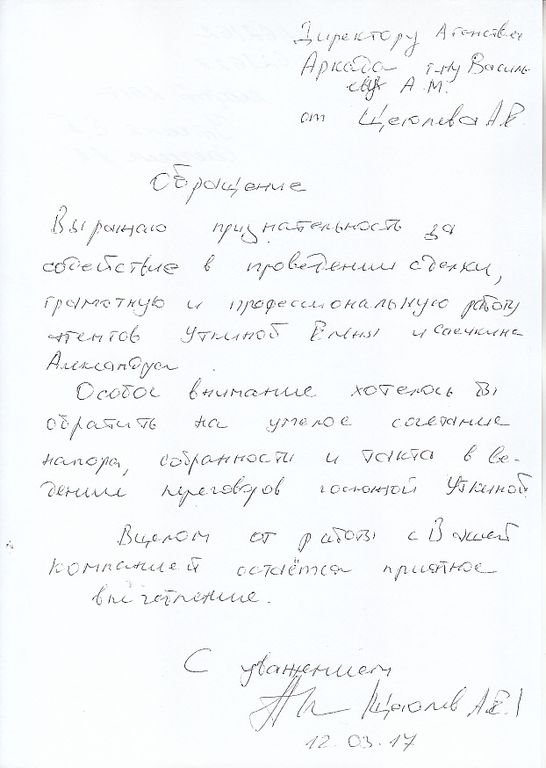 Директору Агентства
Аркада г-ну Василь-
еву А.М.
от Щеголева А.Е.
Обращение
Выражаю признательность за
содействие в проведении сделки,
грамотную и профессиональную работу
агентов Уткиной Елены и
Александра
Особое внимание хотелось бы
обратить на умелое сочетание
напора, собранности и такта в ве-
дении переговоров госпожой Уткиной
Вцелом от работы с Вашей
компанией остаётся приятное
впечатление.
С уважением
Щеголев А.Е.
12.03.17